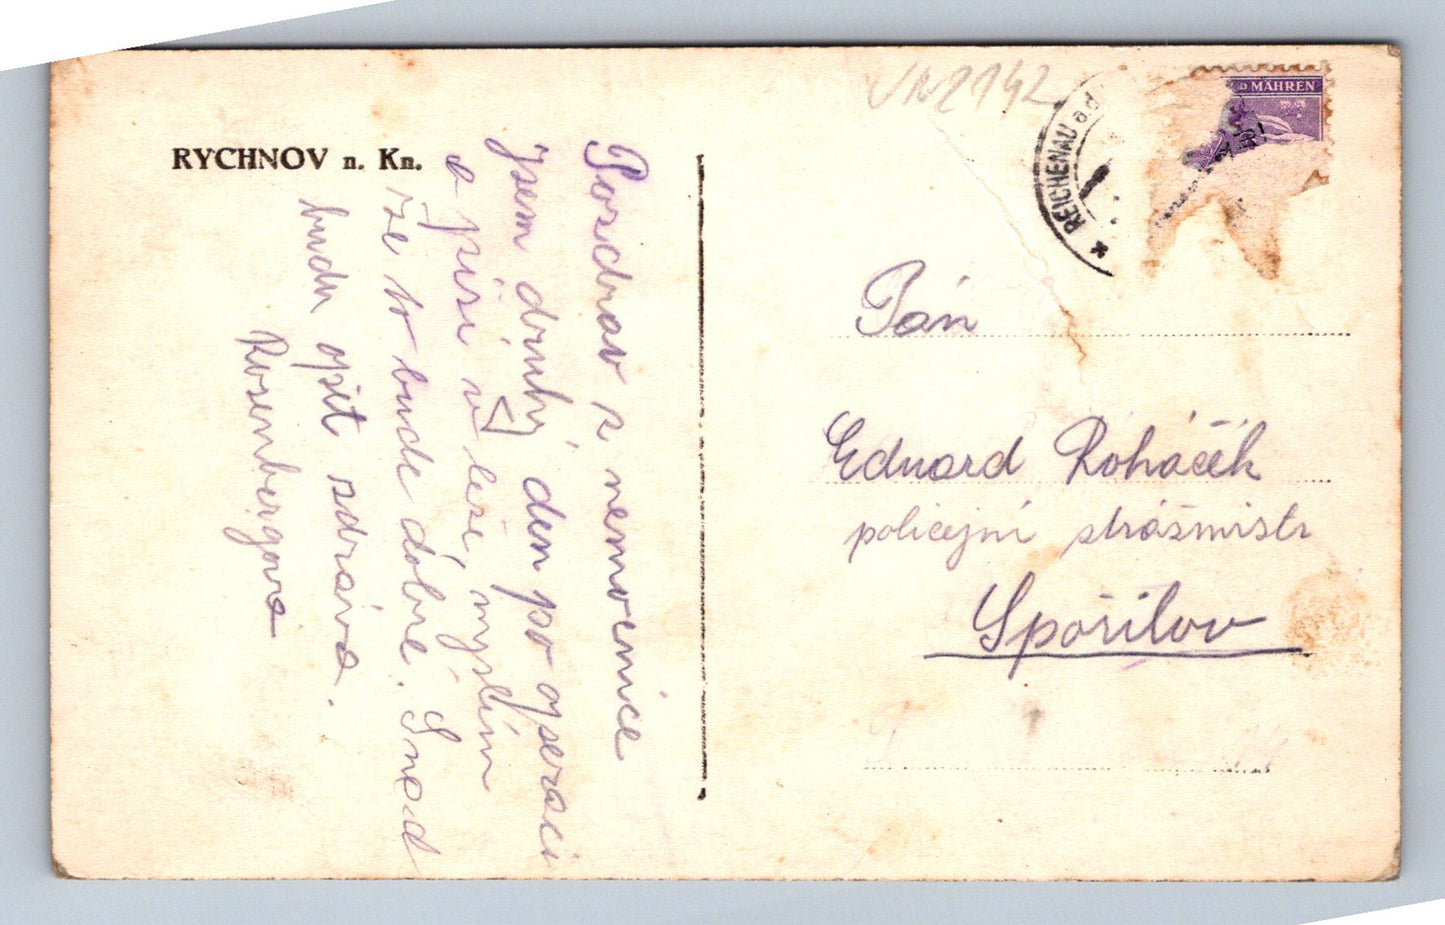 RYCHNOV n. Kn.
Pozdrav z nemocnice
Jsem druhý den po operaci
a píši v leže, myslím
že to bude dobré. Snad
budu opět zdráva.
Rosenbergova
VN2142
* REICHENAU a.d.
D MÄHREN
Pán
Eduard Roháček
policejní strážmistr
Spořilov